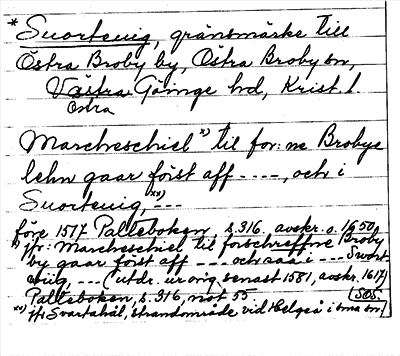 * Suortevig, gränsmärke till
Östra Broby by, Östra Broby sn,
Västra Göinge hd, Krist. l.
Östra
Marcheschiel x) til for:ne Brobye
lehn gaar först aff ----, och i
Suortevig, xx) ---
före 1517 Palleboken, s. 316. avskr. o. 1650.
x) jfr: Marcheschiel til forschreffne Broby
by gaar först aff --- och saa i --- Swort
wiig, --- (utdr. ur orig. senast 1581, avskr. 1617)
Palleboken, s. 316, not 55 SOS.
xx) jfr Svartahål, strandområde vid Helgeå i sma sn.